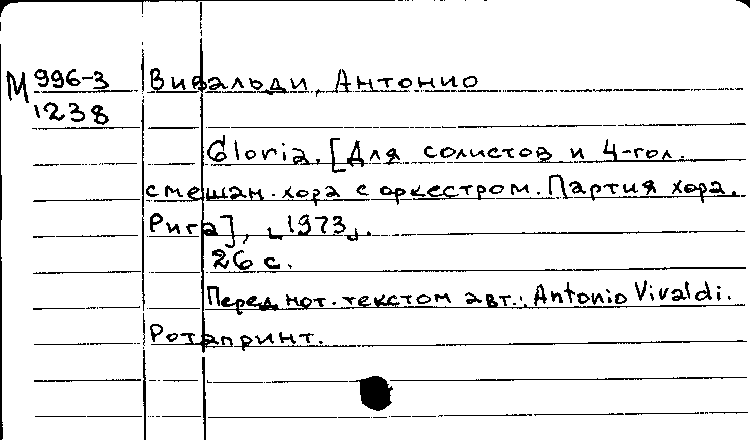 М 996-3 Вивальди, Антонио
1238
Gloria. [Для солистов и 4-гол.
смешан. хора с оркестром. Партия хора.
Рига], [1973].
26 с.
Перед нот. текстом авт.: Antonio Vivaldi.
Ротапринт.